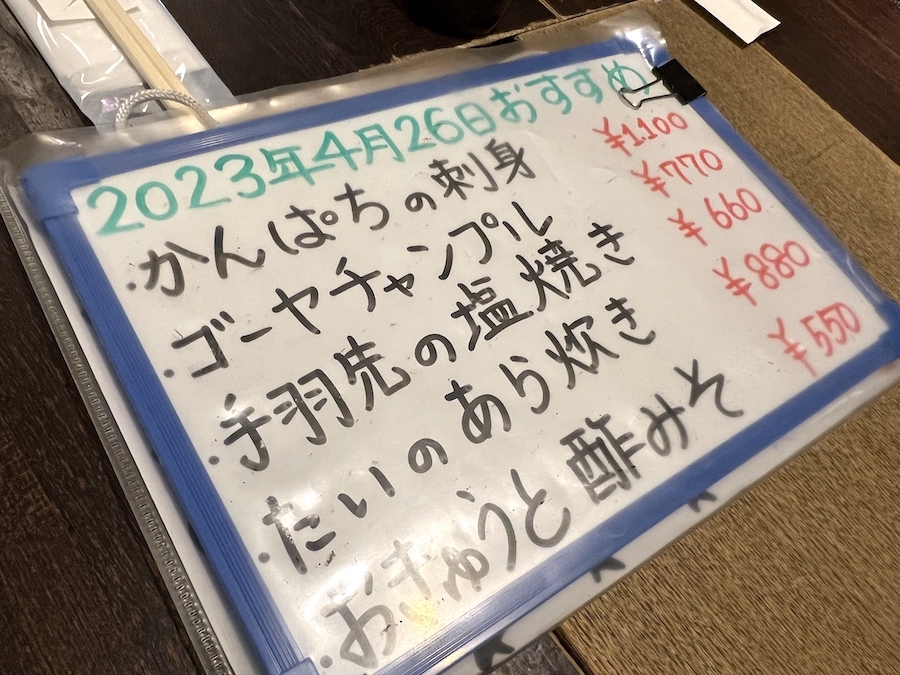 2023年4月26日おすすめ
・かんぱちの刺身 ¥1.100
・ゴーヤチャンプル ¥770
・手羽先の塩焼き ¥660
・たいのあら炊き ¥880
・おきゅうと酢みそ ¥550